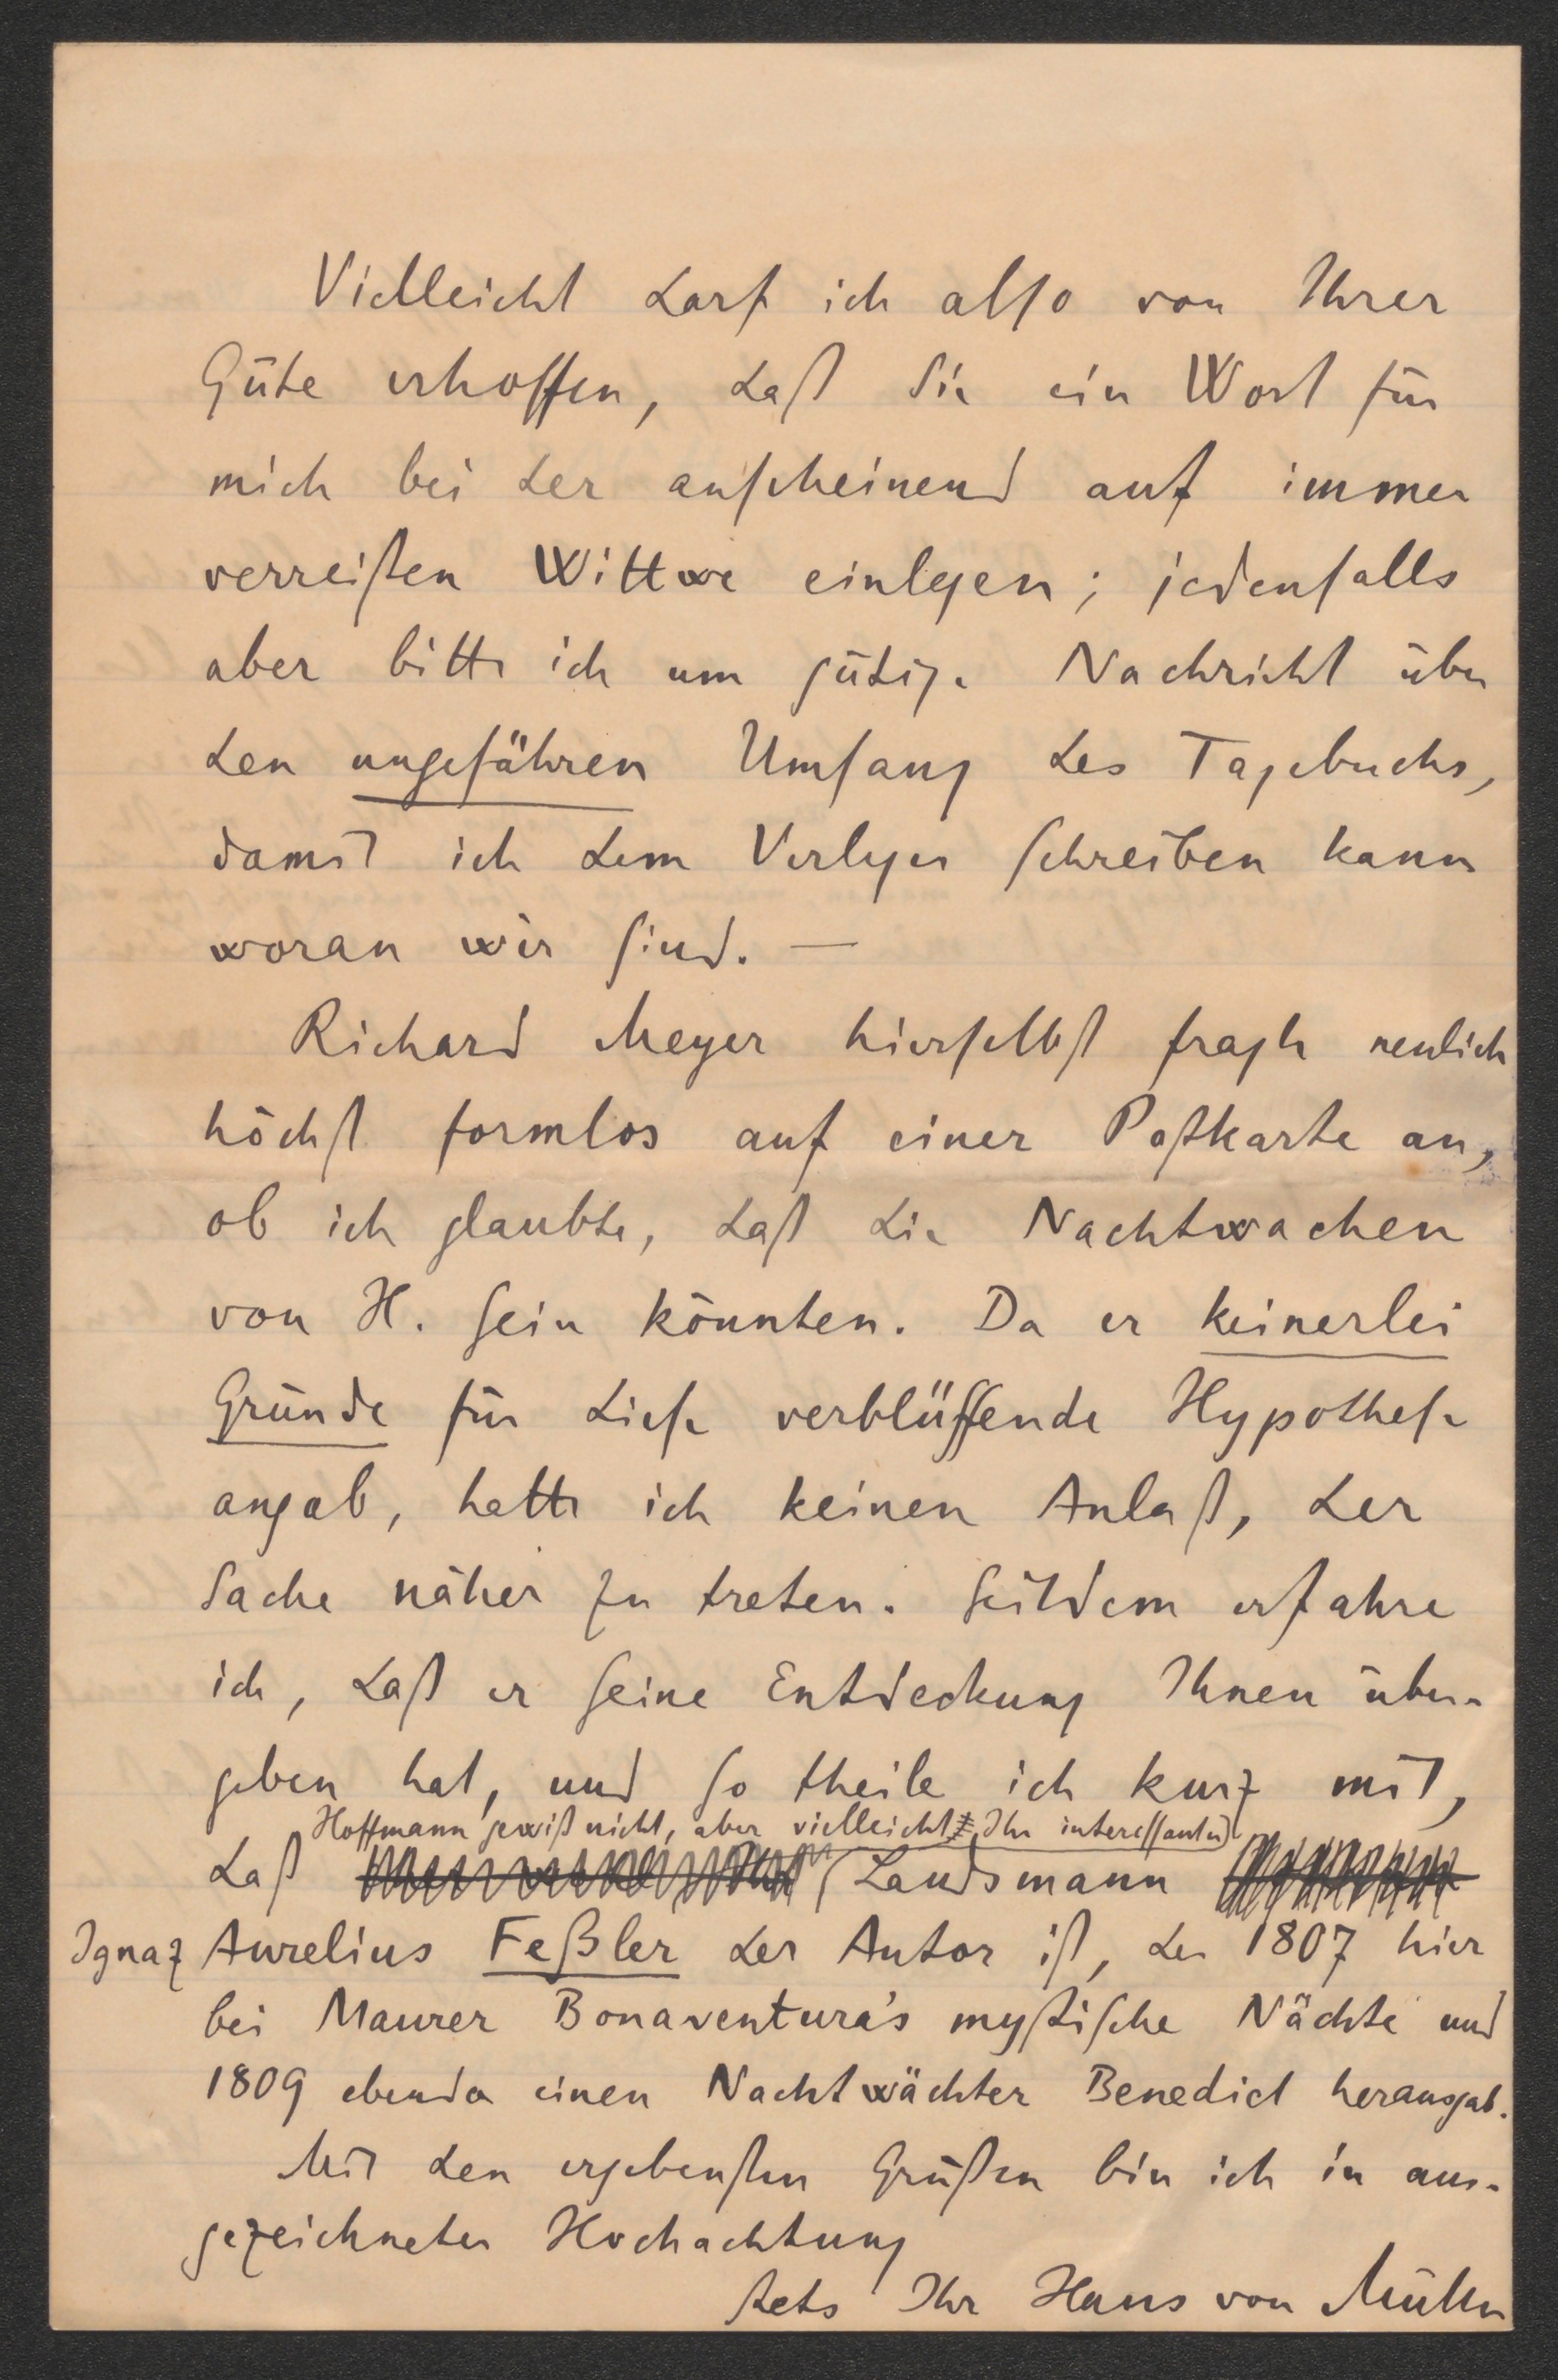 Vielleicht darf ich also von Ihrer
Güte erhoffen, daß Sie ein Wort für
mich bei der anscheinend auf immer
verreisten Wittwe einlegen; jedenfalls
aber bitte ich um gütige Nachricht über
den ungefähren Umfang des Tagebuchs,
damit ich dem Verleger schreiben kann
woran wir sind. —
Richard Meyer hierselbst fragte neulich
höchst formlos auf einer Postkarte an,
ob ich glaubte, daß die Nachtwachen
von H. sein könnten. Da er keinerlei
Gründe für diese verblüffende Hypothese
angab, hatte ich keinen Anlaß, der
Sache näher zu treten. Seitdem erfahre
ich, daß er seine Entdeckung Ihnen über-
geben hat, und so theile ich kurz mit,
Hoffmann gewiß nicht, aber vielleicht Ihr interessanter
daß Landsmann
Ignaz Aurelius Feßler der Autor ist, der 1807 hier
bei Maurer Bonaventura's mystische Nächte und
1809 ebenda einen Nachtwächter Benedict herausgab.
Mit den ergebensten Grüßen bin ich in aus-
gezeichneter Hochachtung
stets Ihr Hans von Müller